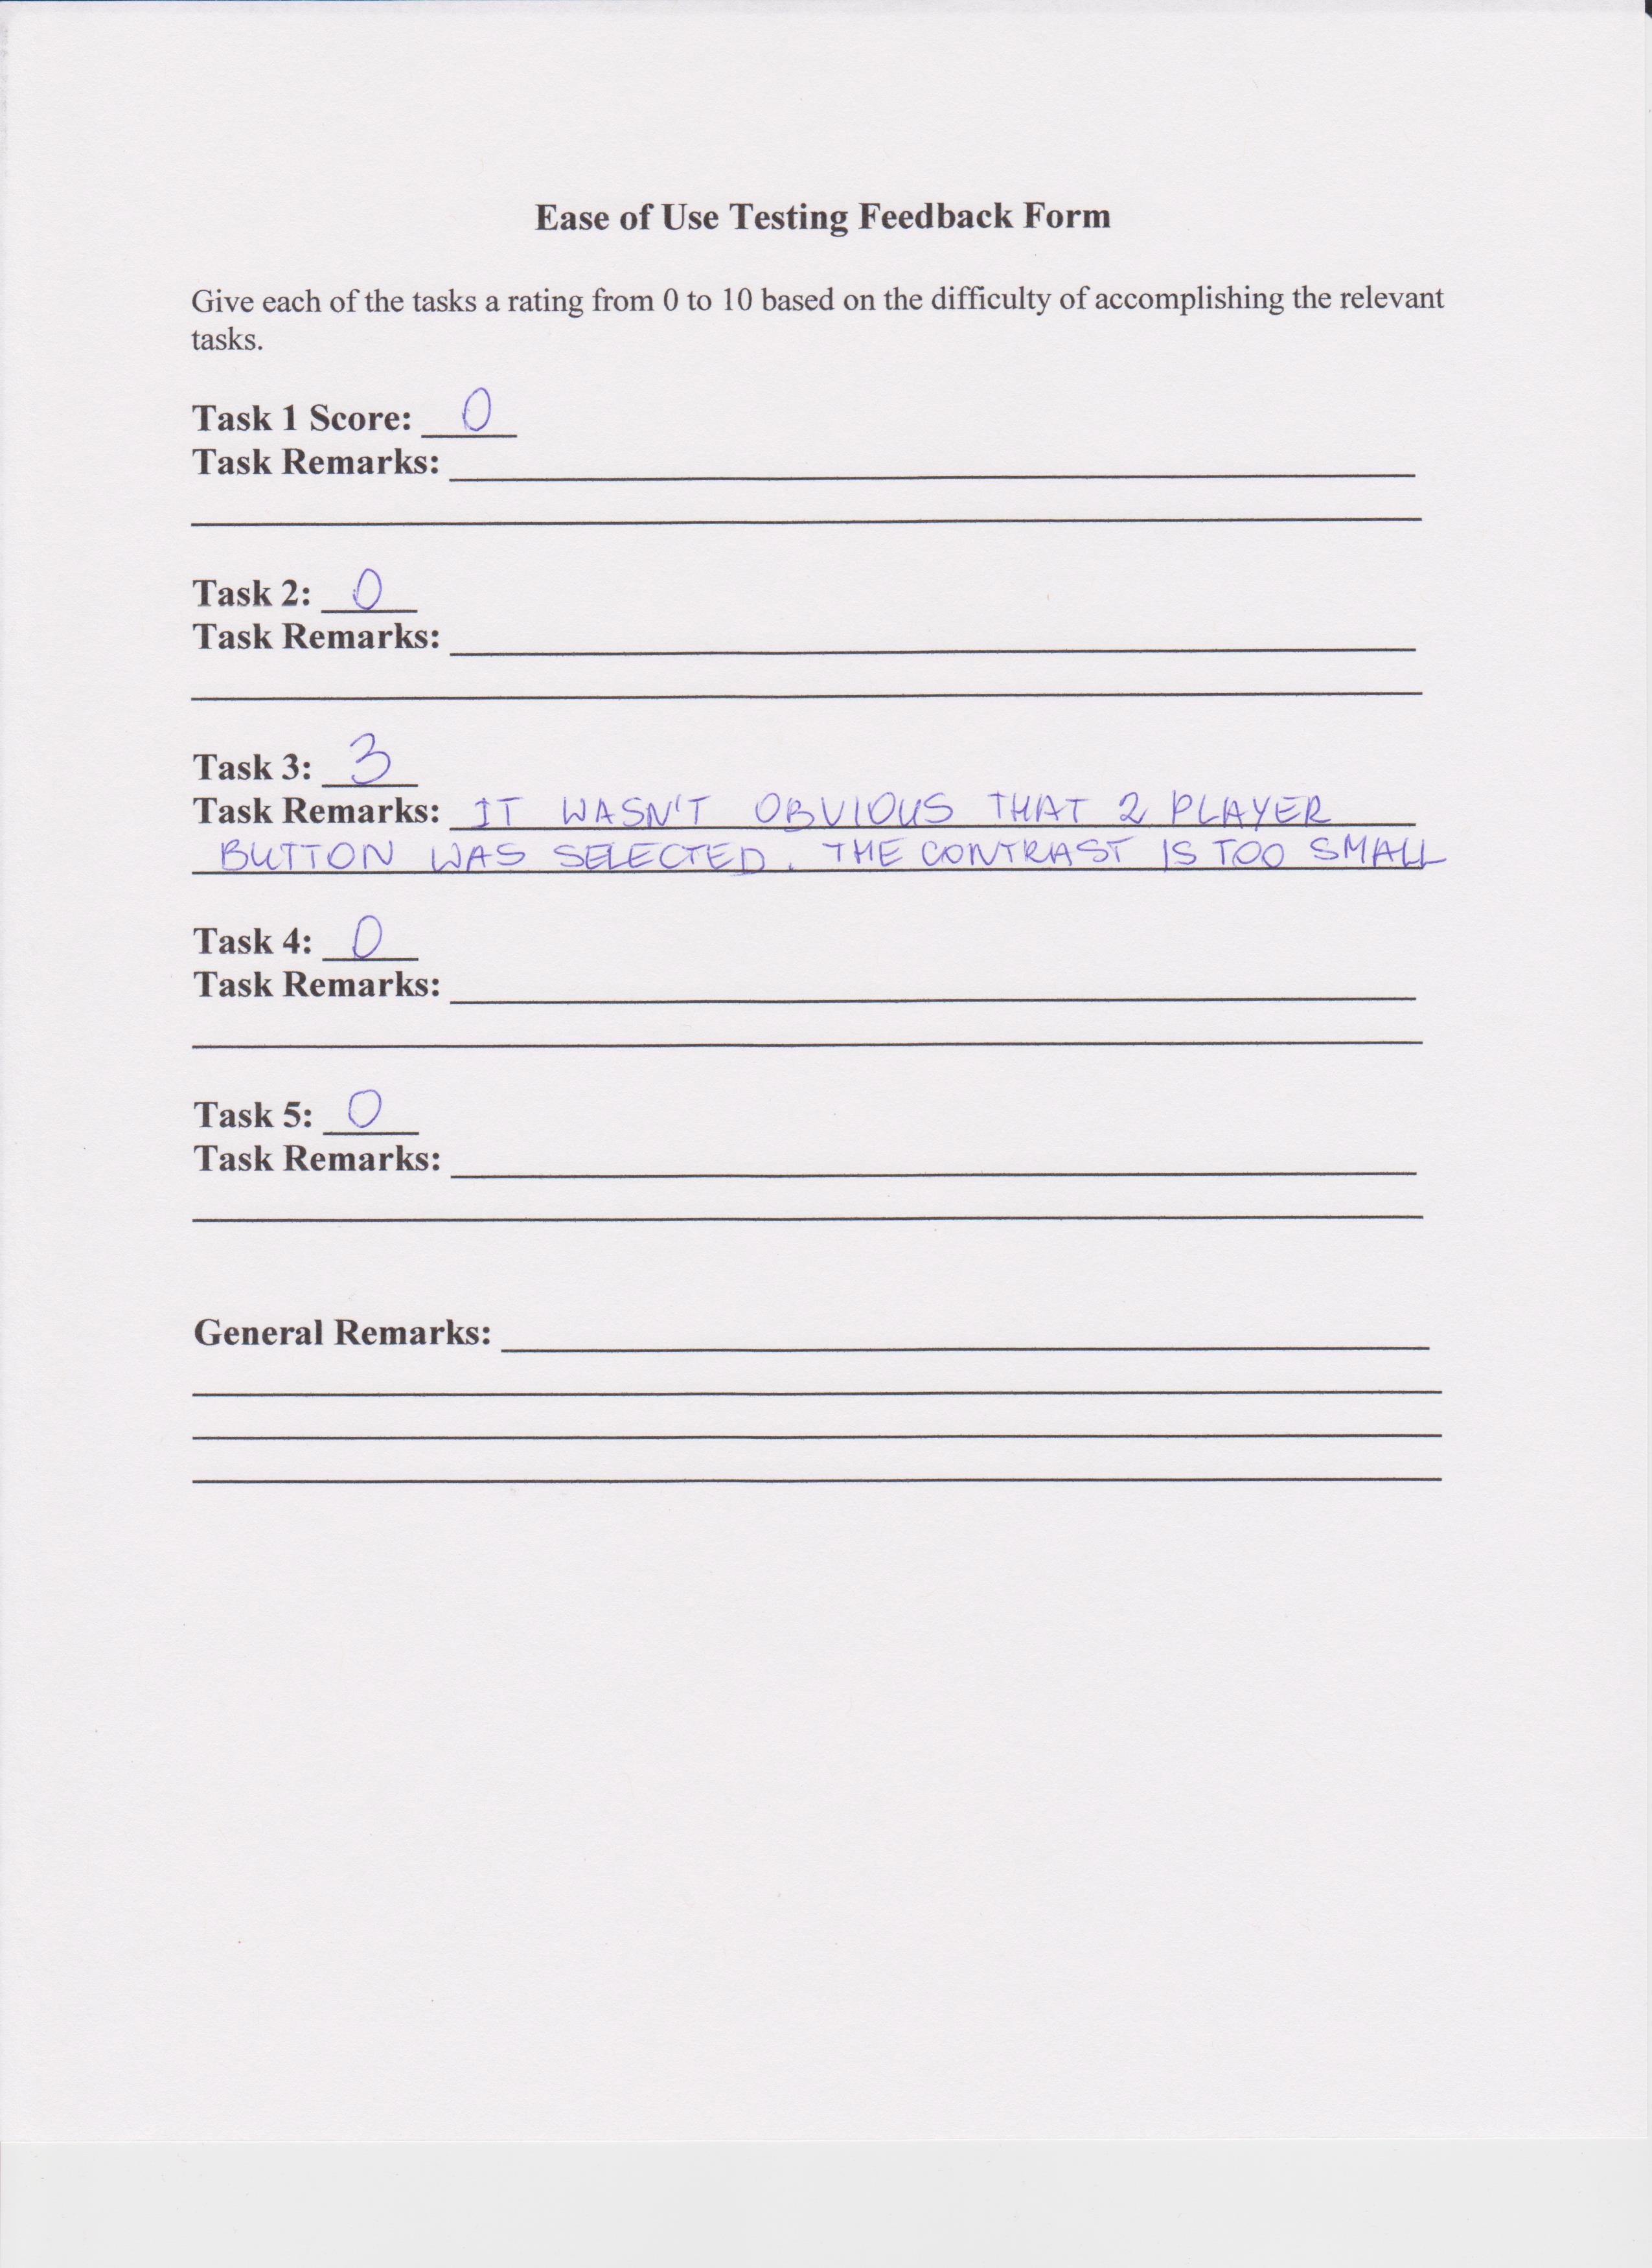 Ease of Use Testing Feedback Form
Give each of the tasks a rating from 0 to 10 based on the difficulty of accomplishing the relevant
tasks.
Task 1 Score: 0
Task Remarks:
Task 2: 0
Task Remarks:
Task 3: 3
Task Remarks: IT WASN'T OBVIOUS THAT 2 PLAYER
BUTTON WAS SELECTED. THE CONTRAST IS TOO SMALL
Task 4: 0
Task Remarks:
Task 5: 0
Task Remarks:
General Remarks: